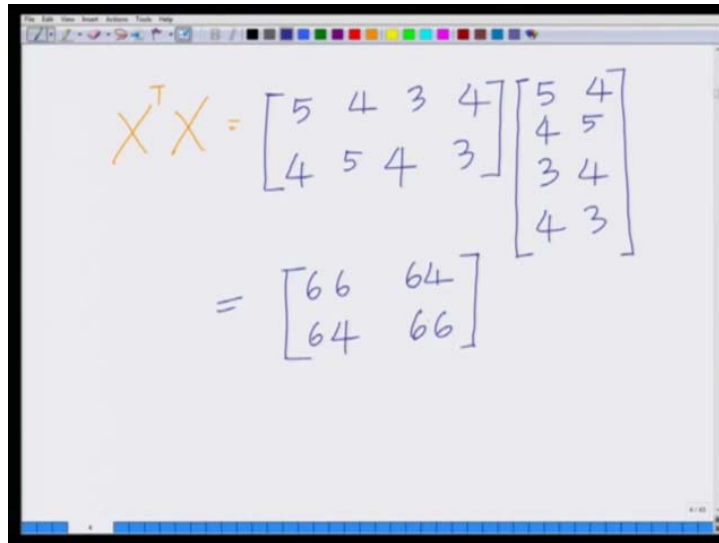 File Edit View Insert Actions Tools Help
X^T X = [5 4 3 4] [5 4]
[4 5 4 3] [4 5]
[3 4]
[4 3]
= [66 64]
[64 66]